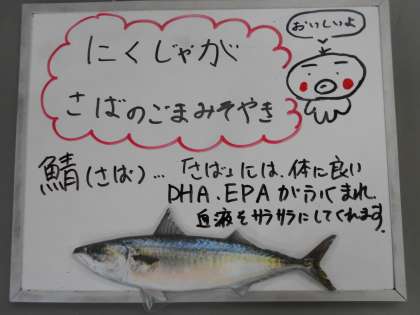 おいしいよ
にくじゃが
さばのごまみそやき
鯖(さば)…「さば」には、体に良い
DHA、EPAがふくまれ
血液をサラサラにしてくれます。